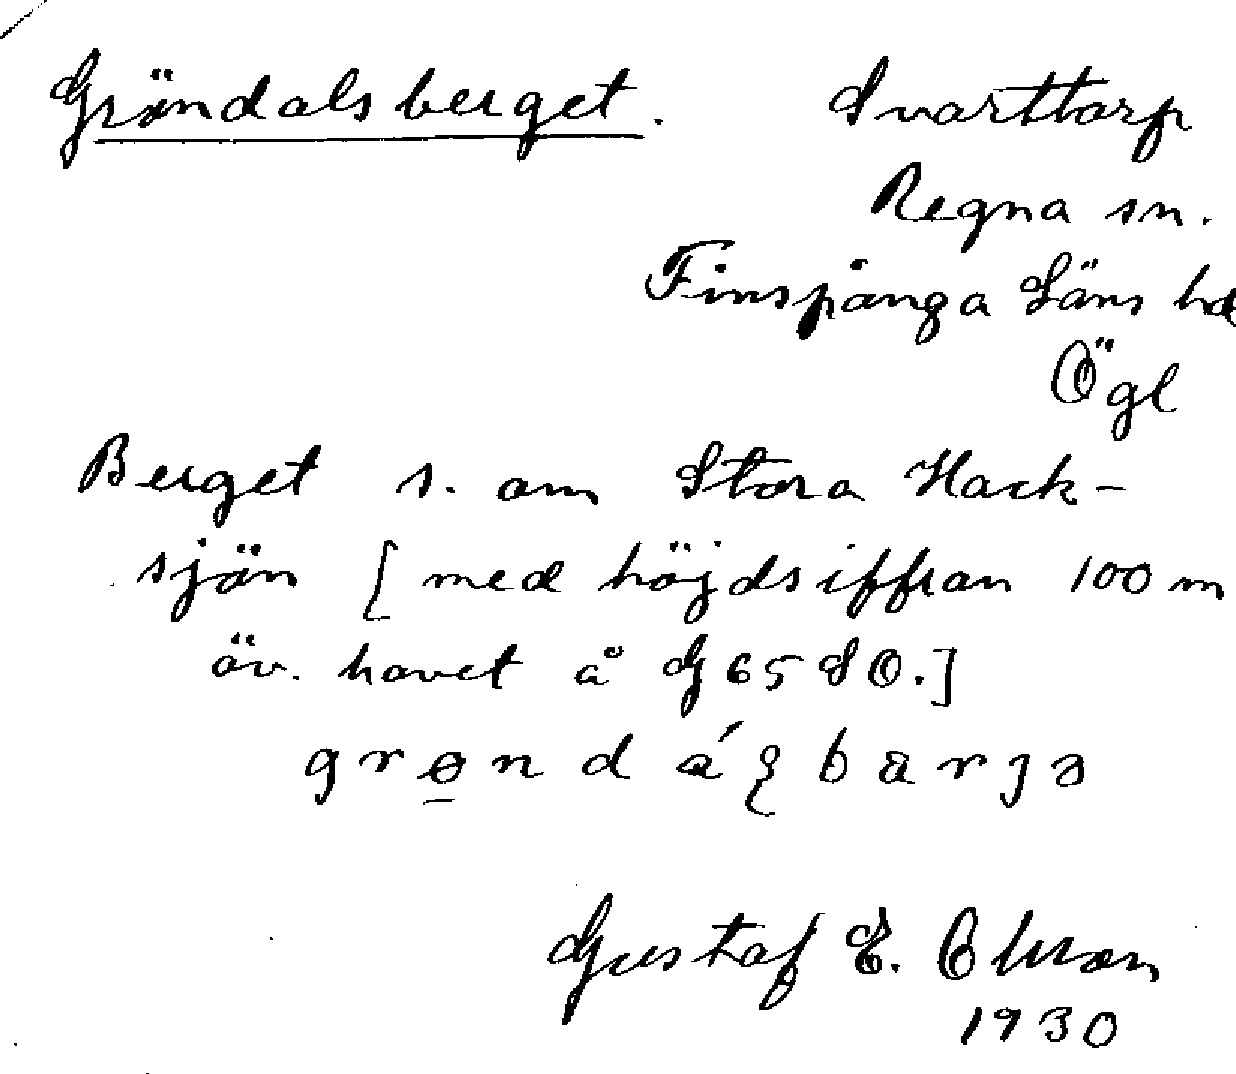 Gröndalsberget. Svarttorp
Regna sn.
Finspånga Läns hd
Ögl
Berget s. om Stora Hack-
sjön [med höjdsiffran 100 m
öv. havet å G 65 SO.]
Gustaf E. Olsson
1930